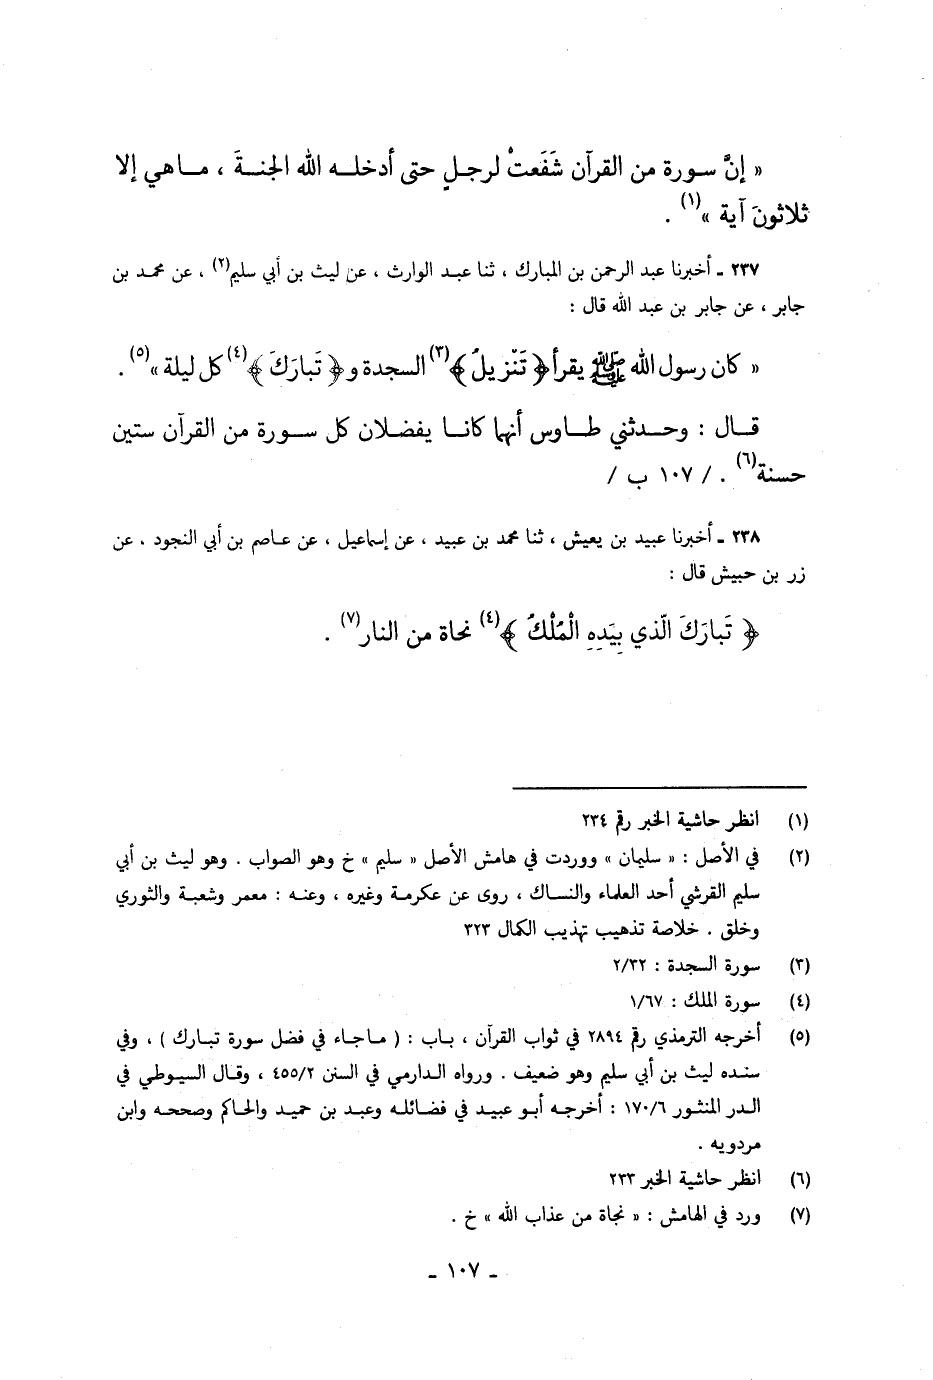 « إنَّ سورة من القرآن شَفَعتْ لرجلٍ حتى أدخله الله الجنةَ ، ما هي إلا
ثلاثونَ آية »(١) .
٢٣٧ ـ أخبرنا عبد الرحمن بن المبارك ، ثنا عبد الوارث ، عن ليث بن أبي سليم(٢) ، عن محمد بن
جابر ، عن جابر بن عبد الله قال :
« كان رسول الله ﷺ يقرأ ﴿ تَنْزيلُ ﴾(٣) السجدة و ﴿ تَبارَكَ ﴾(٤) كل ليلة »(٥) .
قال : وحدثني طاوس أنها كانا يفضلان كل سورة من القرآن ستين
حسنة(٦) . / ١٠٧ ب /
٢٣٨ ـ أخبرنا عبيد بن يعيش ، ثنا محمد بن عبيد ، عن إسماعيل ، عن عاصم بن أبي النجود ، عن
زر بن حبيش قال :
﴿ تَبارَكَ الّذي بِيَدِهِ الْمُلْكُ ﴾(٤) نحاة من النار(٧) .
(١) انظر حاشية الخبر رقم ٢٣٤
(٢) في الأصل : « سليمان » ووردت في هامش الأصل « سليم » خ وهو الصواب . وهو ليث بن أبي
سليم القرشي أحد العلماء والنساك ، روى عن عكرمة وغيره ، وعنه : معمر وشعبة والثوري
وخلق . خلاصة تذهيب تهذيب الكمال ٣٢٣
(٣) سورة السجدة : ٢/٣٢
(٤) سورة الملك : ١/٦٧
(٥) أخرجه الترمذي رقم ٢٨٩٤ في ثواب القرآن ، باب : ( ماجاء في فضل سورة تبارك ) ، وفي
سنده ليث بن أبي سليم وهو ضعيف . ورواه الدارمي في السنن ٤٥٥/٢ ، وقال السيوطي في
الدر المنثور ١٧٠/٦ : أخرجه أبو عبيد في فضائله وعبد بن حميد والحاكم وصححه وابن
مردويه .
(٦) انظر حاشية الخبر ٢٣٣
(٧) ورد في الهامش : « نجاة من عذاب الله » خ .
ـ ١٠٧ ـ